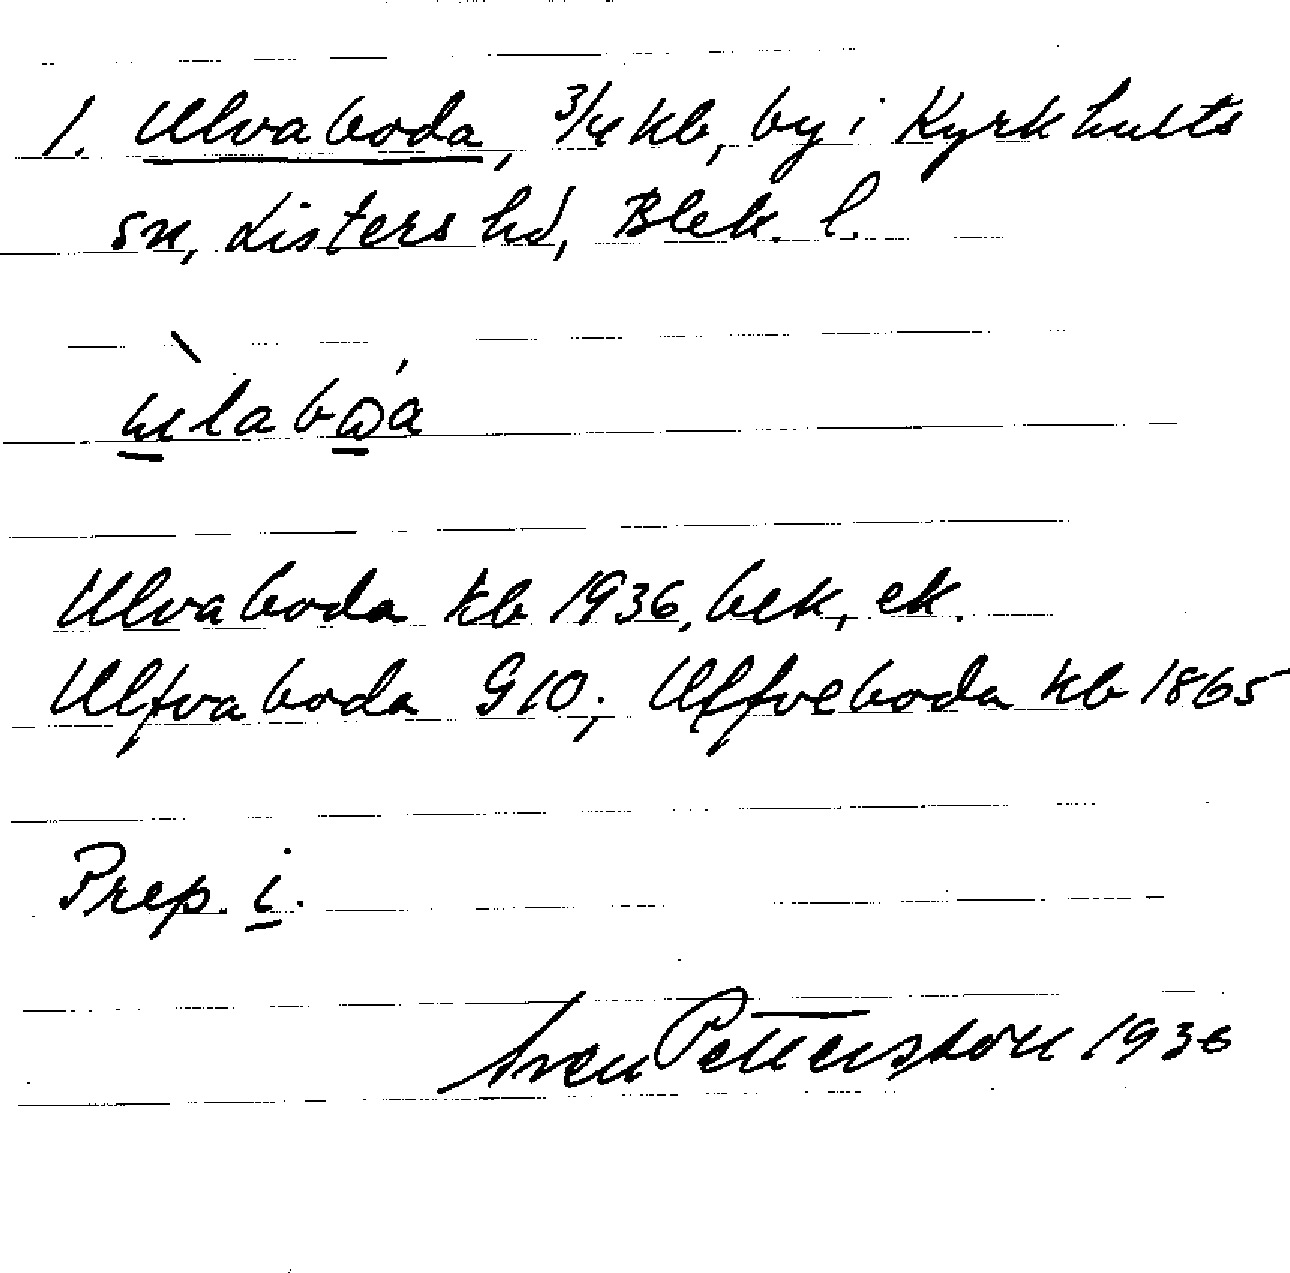 1. Ulvaboda, 3/4 kb, by i Kyrkhults
sn, Listers hd, Blek. l.
Ulvaboda kb 1936, bek, ek.
Ulfvaboda G10; Ulffveboda kb 1865
Prep. i.
Sven Pettersson 1936